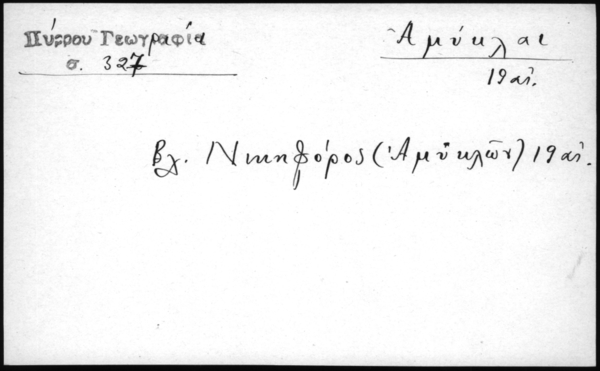 Πύῤῥου Γεωγραφία
σ. 327
Ἀμύκλαι
19 αἰ.
Βλ. Νικηφόρος (Ἀμυκλῶν) 19 αἰ.